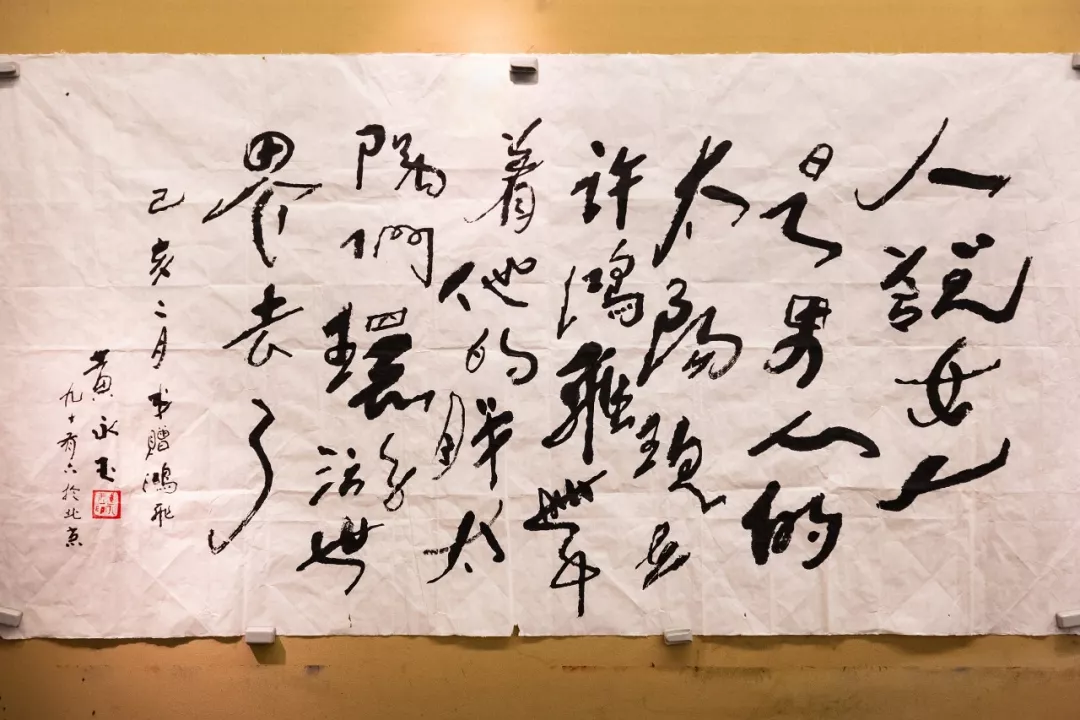 人說女人
是男人的
太陽現在
許鴻飛帶
着他的胖太
陽們環游世
界去了
己亥二月書贈鴻飛
黃永玉
九十有六於北京